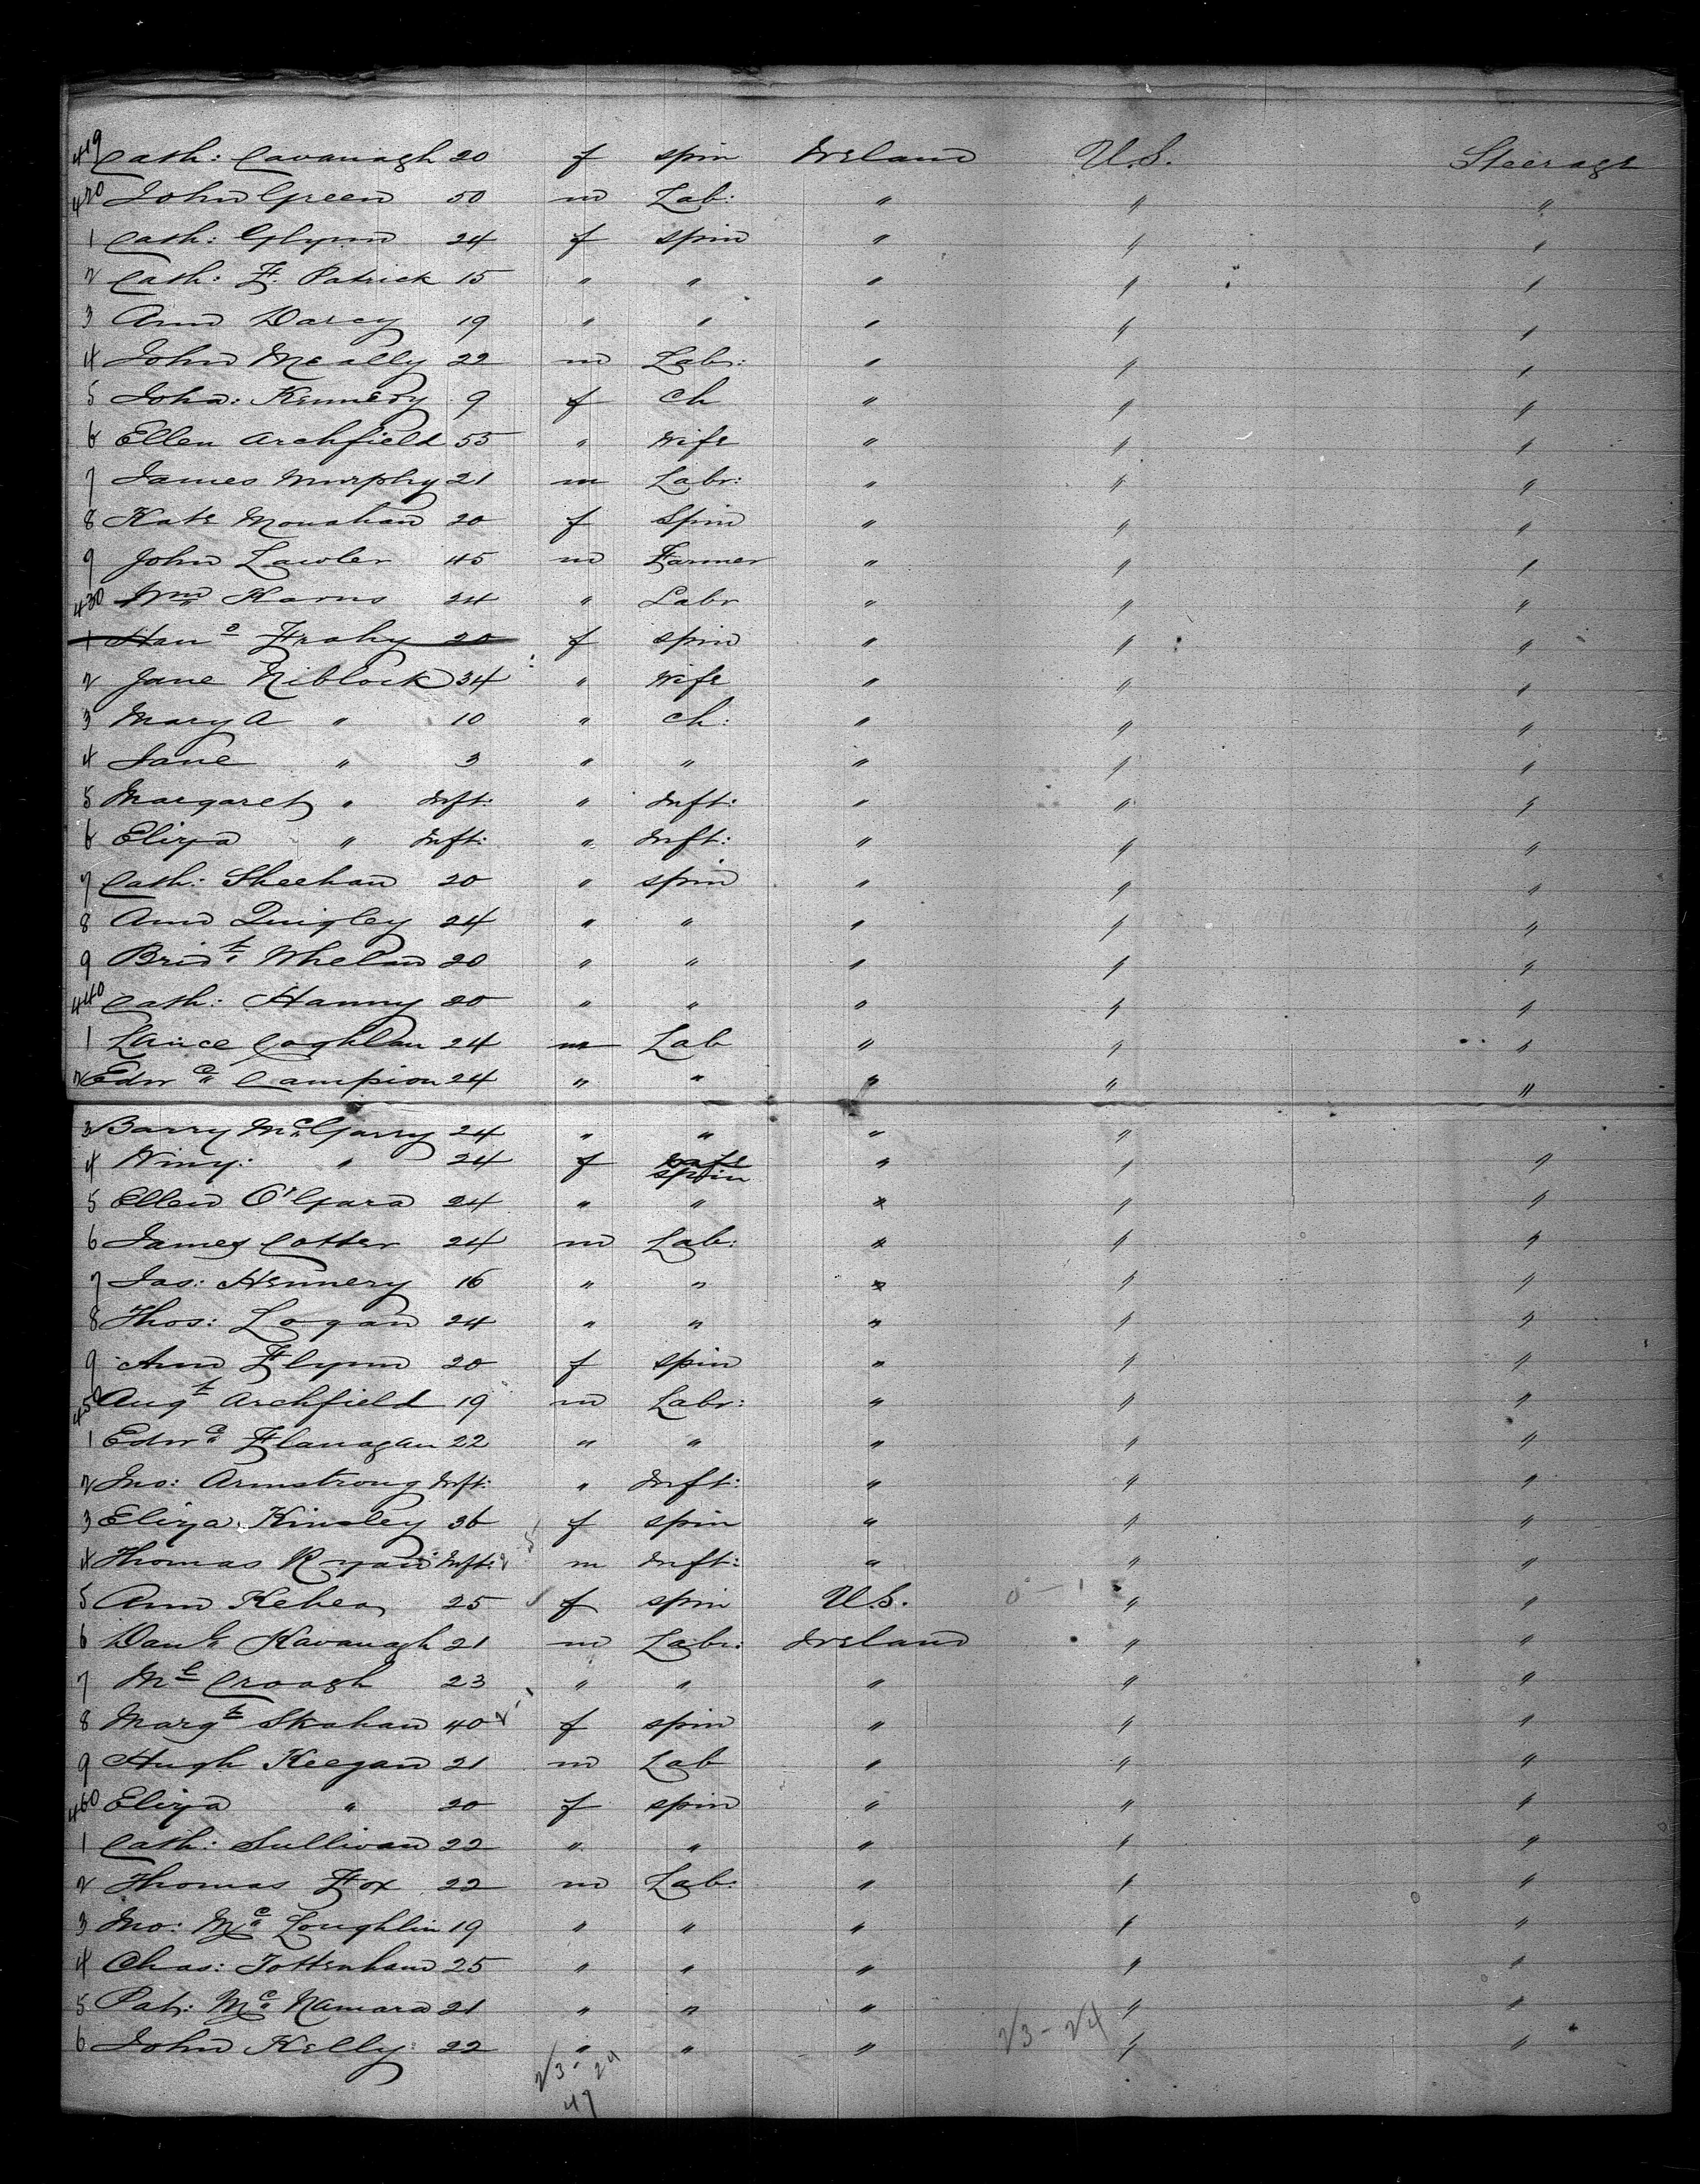 419 Cath: Cavanagh 20 f spin Ireland U.S. Steerage
420 John Green 50 m Lab: " " "
1 Cath: Glynn 24 f spin " " "
2 Cath: F. Patrick 15 " " " " "
3 Ann Darcy 19 " " " " "
4 John McNally 22 m Labr: " " "
5 Joha: Kennedy 9 f Ch " " "
6 Ellen Archfield 55 " Wife " " "
7 James Murphy 21 m Labr: " " "
8 Kate Monahan 20 f Spin " " "
9 John Lawler 45 m Farmer " " "
430 Wm Karns 24 " Labr " " "
1 Hana Frahy 20 f spin " " "
2 Jane Niblock 34 " Wife " " "
3 Mary A " 10 " ch: " " "
4 Jane " 3 " " " " "
5 Margaret " Inft: " Inft: " " "
6 Eliza " Inft: " Inft: " " "
7 Cath: Sheehan 20 " spin " " "
8 Ann Quigley 24 " " " " "
9 Bridt Whelan 20 " " " " "
440 Cath: Hanny 20 " " " " "
1 Lance Coghlan 24 m Lab " " "
2 Edwd Campion 24 " " " " "
3 Barry McGarry 24 " " " "
4 Winy: " 24 f wife spin " " "
5 Ellen O'Gara 24 " " " " "
6 James Cotter 24 m Lab: " " "
7 Jas: Hennery 16 " " " " "
8 Thos: Logan 24 " " " " "
9 Ann Flynn 20 f spin " " "
450 Augt Archfield 19 m Labr: " " "
1 Edwd Flanagan 22 " " " " "
2 Jno: Armstrong Inft: " Inft: " " "
3 Eliza Kinsley 36 f spin " " "
4 Thomas Ryan Inft: m Inft: " " "
5 Ann Kehea 25 f spin U.S. 0 - 1 " "
6 Danl Kavanagh 21 m Labr: Ireland " "
7 Ml Croagh 23 " " " " "
8 Margt Skahan 40 f spin " " "
9 Hugh Keegan 21 m Lab " " "
460 Eliza " 20 f spin " " "
1 Cath: Sullivan 22 " " " " "
2 Thomas Fox 22 m Lab: " " "
3 Jno: Mc Loughlin 19 " " " " "
4 Chas: Tottenham 25 " " " " "
5 Pat: Mc Namara 21 " " " " "
6 John Kelly: 22 " " " 23 - 24 " "
23 - 24
47